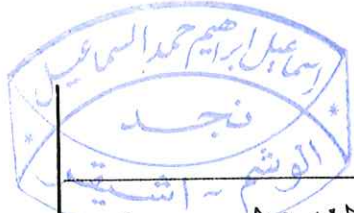 اسماعيل ابراهيم حمد السماعيل
نجد
الوشم - اشيقر